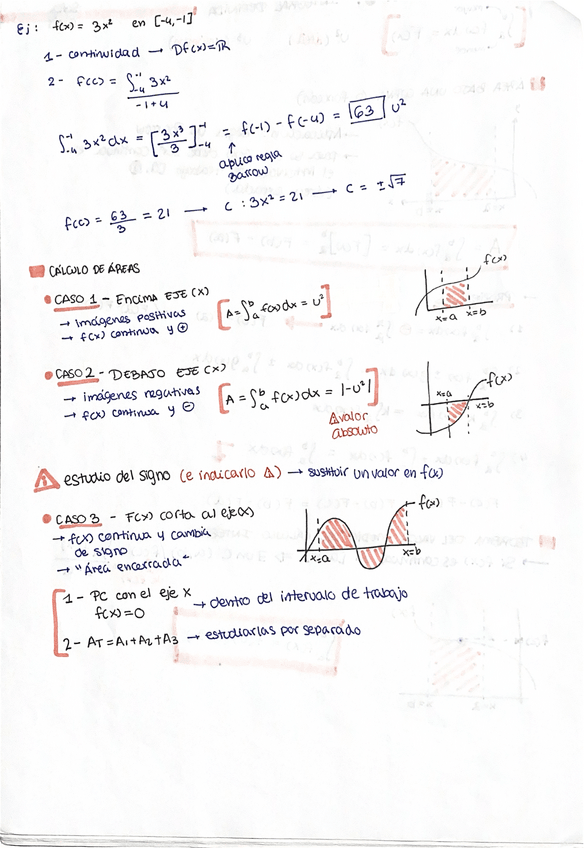 Ej: f(x) = 3x² en [-4,-1]
1- continuidad → Df(x)=ℝ
2- f(c) = ∫₋₄⁻¹ 3x² / -1+4
∫₋₄⁻¹ 3x² dx = [3x³/3]₋₄⁻¹ = f(-1) - f(-4) = 63 u²
↑
aplico regla
Barrow
f(c) = 63/3 = 21 → c : 3x² = 21 → c = ±√7
CÁLCULO DE ÁREAS
CASO 1 - Encima EJE (X)
→ Imágenes positivas
→ f(x) continua y ⊕
[A = ∫ₐᵇ f(x) dx = u²]
f(x)
x=a x=b
CASO 2 - DEBAJO EJE (X)
→ imágenes negativas
→ f(x) continua y ⊖
[A = ∫ₐᵇ f(x) dx = |-u²|]
⚠ valor
absoluto
f(x)
x=a
x=b
⚠ estudio del signo (e indicarlo ⚠) → sustituir un valor en f(x)
CASO 3 - F(x) corta al eje(x)
→ f(x) continua y cambia
de signo
→ "Área encerrada"
f(x)
x=a x=b
1- PC con el eje X
f(x)=0 → dentro del intervalo de trabajo
2- AT = A1 + A2 + A3 → estudiarlas por separado